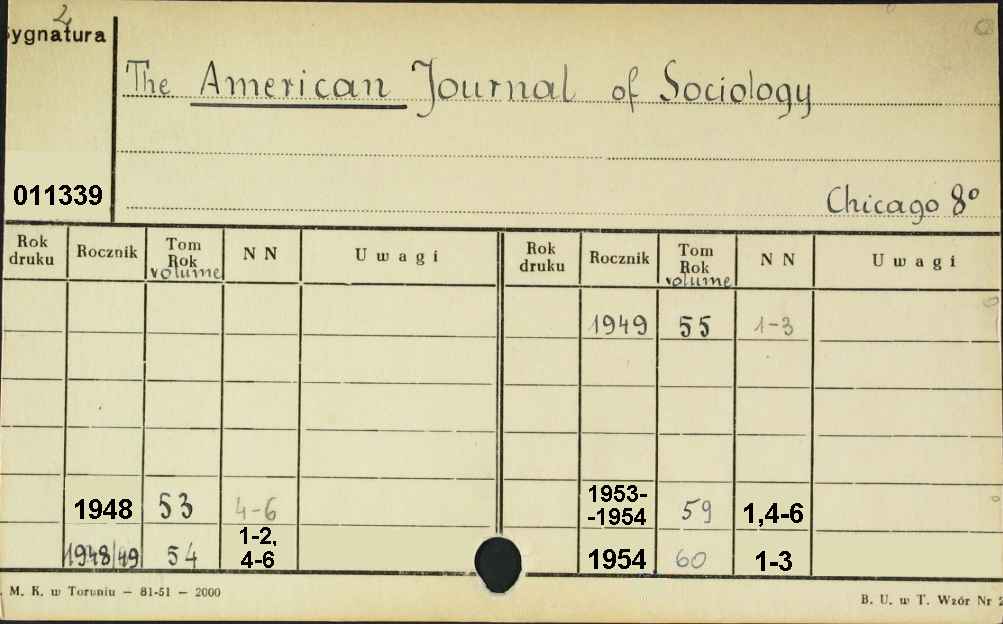 2
Sygnatura
The American Journal of Sociology
011339
Chicago 8°
Rok druku Rocznik Tom Rok volume N N Uwagi Rok druku Rocznik Tom Rok volume N N Uwagi
1949 55 1-3
1948 53 4-6 1953--1954 59 1,4-6
1948/49 54 1-2, 4-6 1954 60 1-3
M. K. w Toruniu — 81-51 — 2000
B. U. w T. Wzór Nr 2